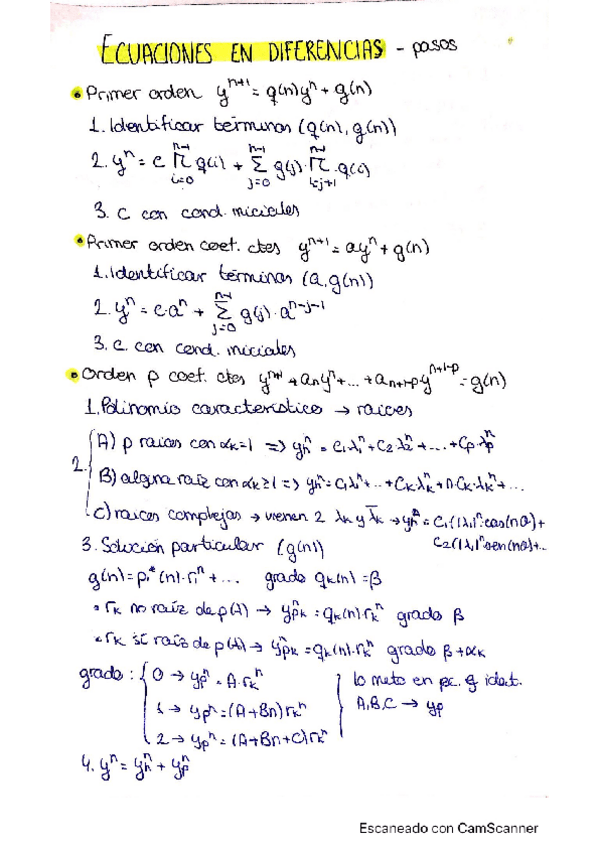 ECUACIONES EN DIFERENCIAS - pasos
• Primer orden yⁿ⁺¹ = q(n)yⁿ + g(n)
1. Identificar términos (q(n), g(n))
2. yⁿ = c ∏_{i=0}^{n-1} q(i) + ∑_{j=0}^{n-1} g(j) · ∏_{i=j+1}^{n-1} q(i)
3. C con cond. iniciales
• Primer orden coef. ctes yⁿ⁺¹ = ayⁿ + g(n)
1. Identificar términos (a, g(n))
2. yⁿ = c·aⁿ + ∑_{j=0}^{n-1} g(j)·a^{n-j-1}
3. C. con cond. iniciales
• Orden p coef. ctes yⁿ⁺¹ + aₙyⁿ + ... + a_{n+1-p}y^{n+1-p} = g(n)
1. Polinomio característico → raíces
2. A) p raíces con αk=1 => yₕⁿ = C₁λ₁ⁿ + C₂λ₂ⁿ + ... + Cₚ·λₚⁿ
B) alguna raíz con αk≥1 => yₕⁿ = C₁λ₁ⁿ + .. + Ckλkⁿ + n·Ck·λkⁿ + ...
C) raíces complejas → vienen 2 λk y λ̄k → yₕⁿ = C₁(|λ|ⁿ·cos(nθ) +
C₂(|λ|ⁿ sen(nθ) + ..
3. Solución particular (g(n))
g(n) = p₁*(n)·r₁ⁿ + ... grado qk(n) = β
• rk no raíz de p(λ) → ypkⁿ = qk(n)·rkⁿ grado β
• rk sí raíz de p(λ) → ypkⁿ = qk(n)·rkⁿ grado β + αk
grado: 0 → ypⁿ = A·rkⁿ lo meto en ec. g ident.
1 → ypⁿ = (A+Bn)rkⁿ A,B,C → yp
2 → ypⁿ = (A+Bn+C)rkⁿ
4. yⁿ = yₕⁿ + ypⁿ
Escaneado con CamScanner